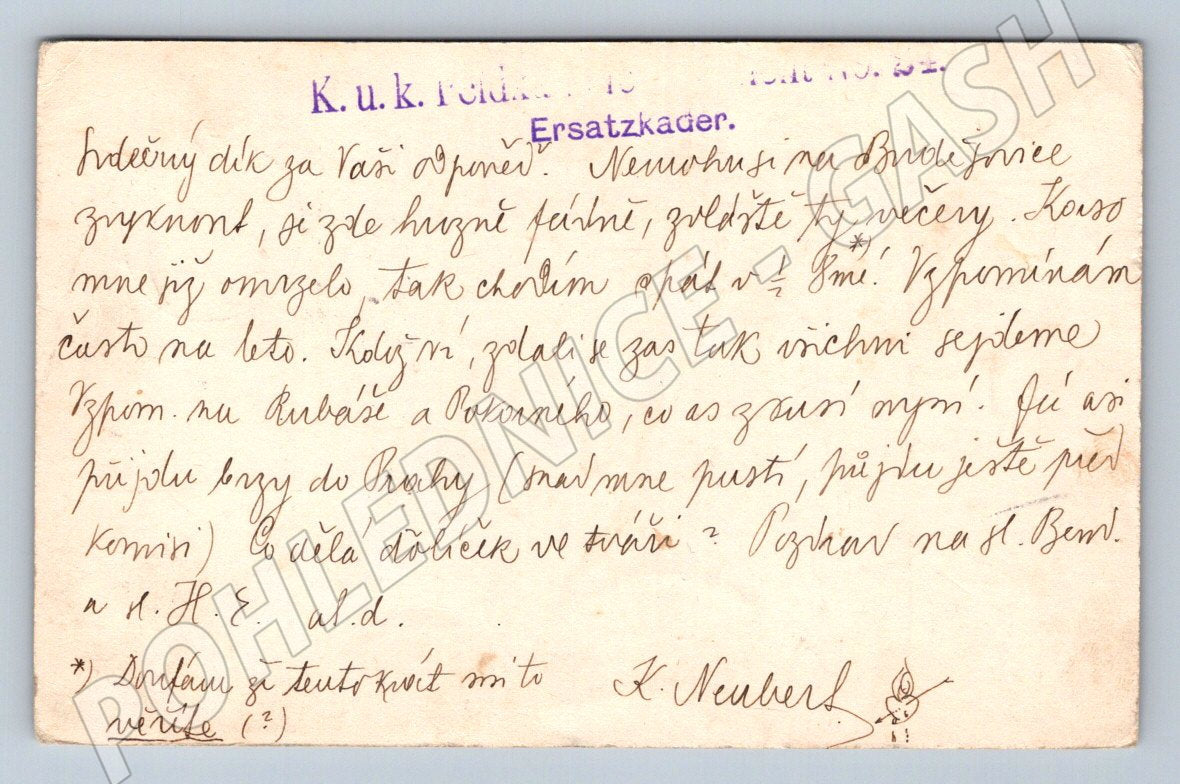 K. u. k. Feldka No. 24.
Ersatzkader.
Srdečný dík za Vaši odpověď. Nemohu si na Budějovice
zvyknout, je zde hrozně fádně, zvláště ty večery. Korso
mne již omrzelo, tak chodím spát v ½ 8mé! *) Vzpomínám
často na leto. Kdož ví, zdali se zas tak všichni sejdeme
Vzpom. na Rubáše a Pokorného, co as zkusí nyní. Já asi
přijdu brzy do Prahy (snad mne pustí, půjdu ještě před
komisi) Co dělá ďolíček ve tváři? Pozdrav na sl. Bend.
a sl. H. E. at.d.
*) Doufám že tentokrát mi to
věříte (?)
K. Neubert.
POHLEDNICE - GASH